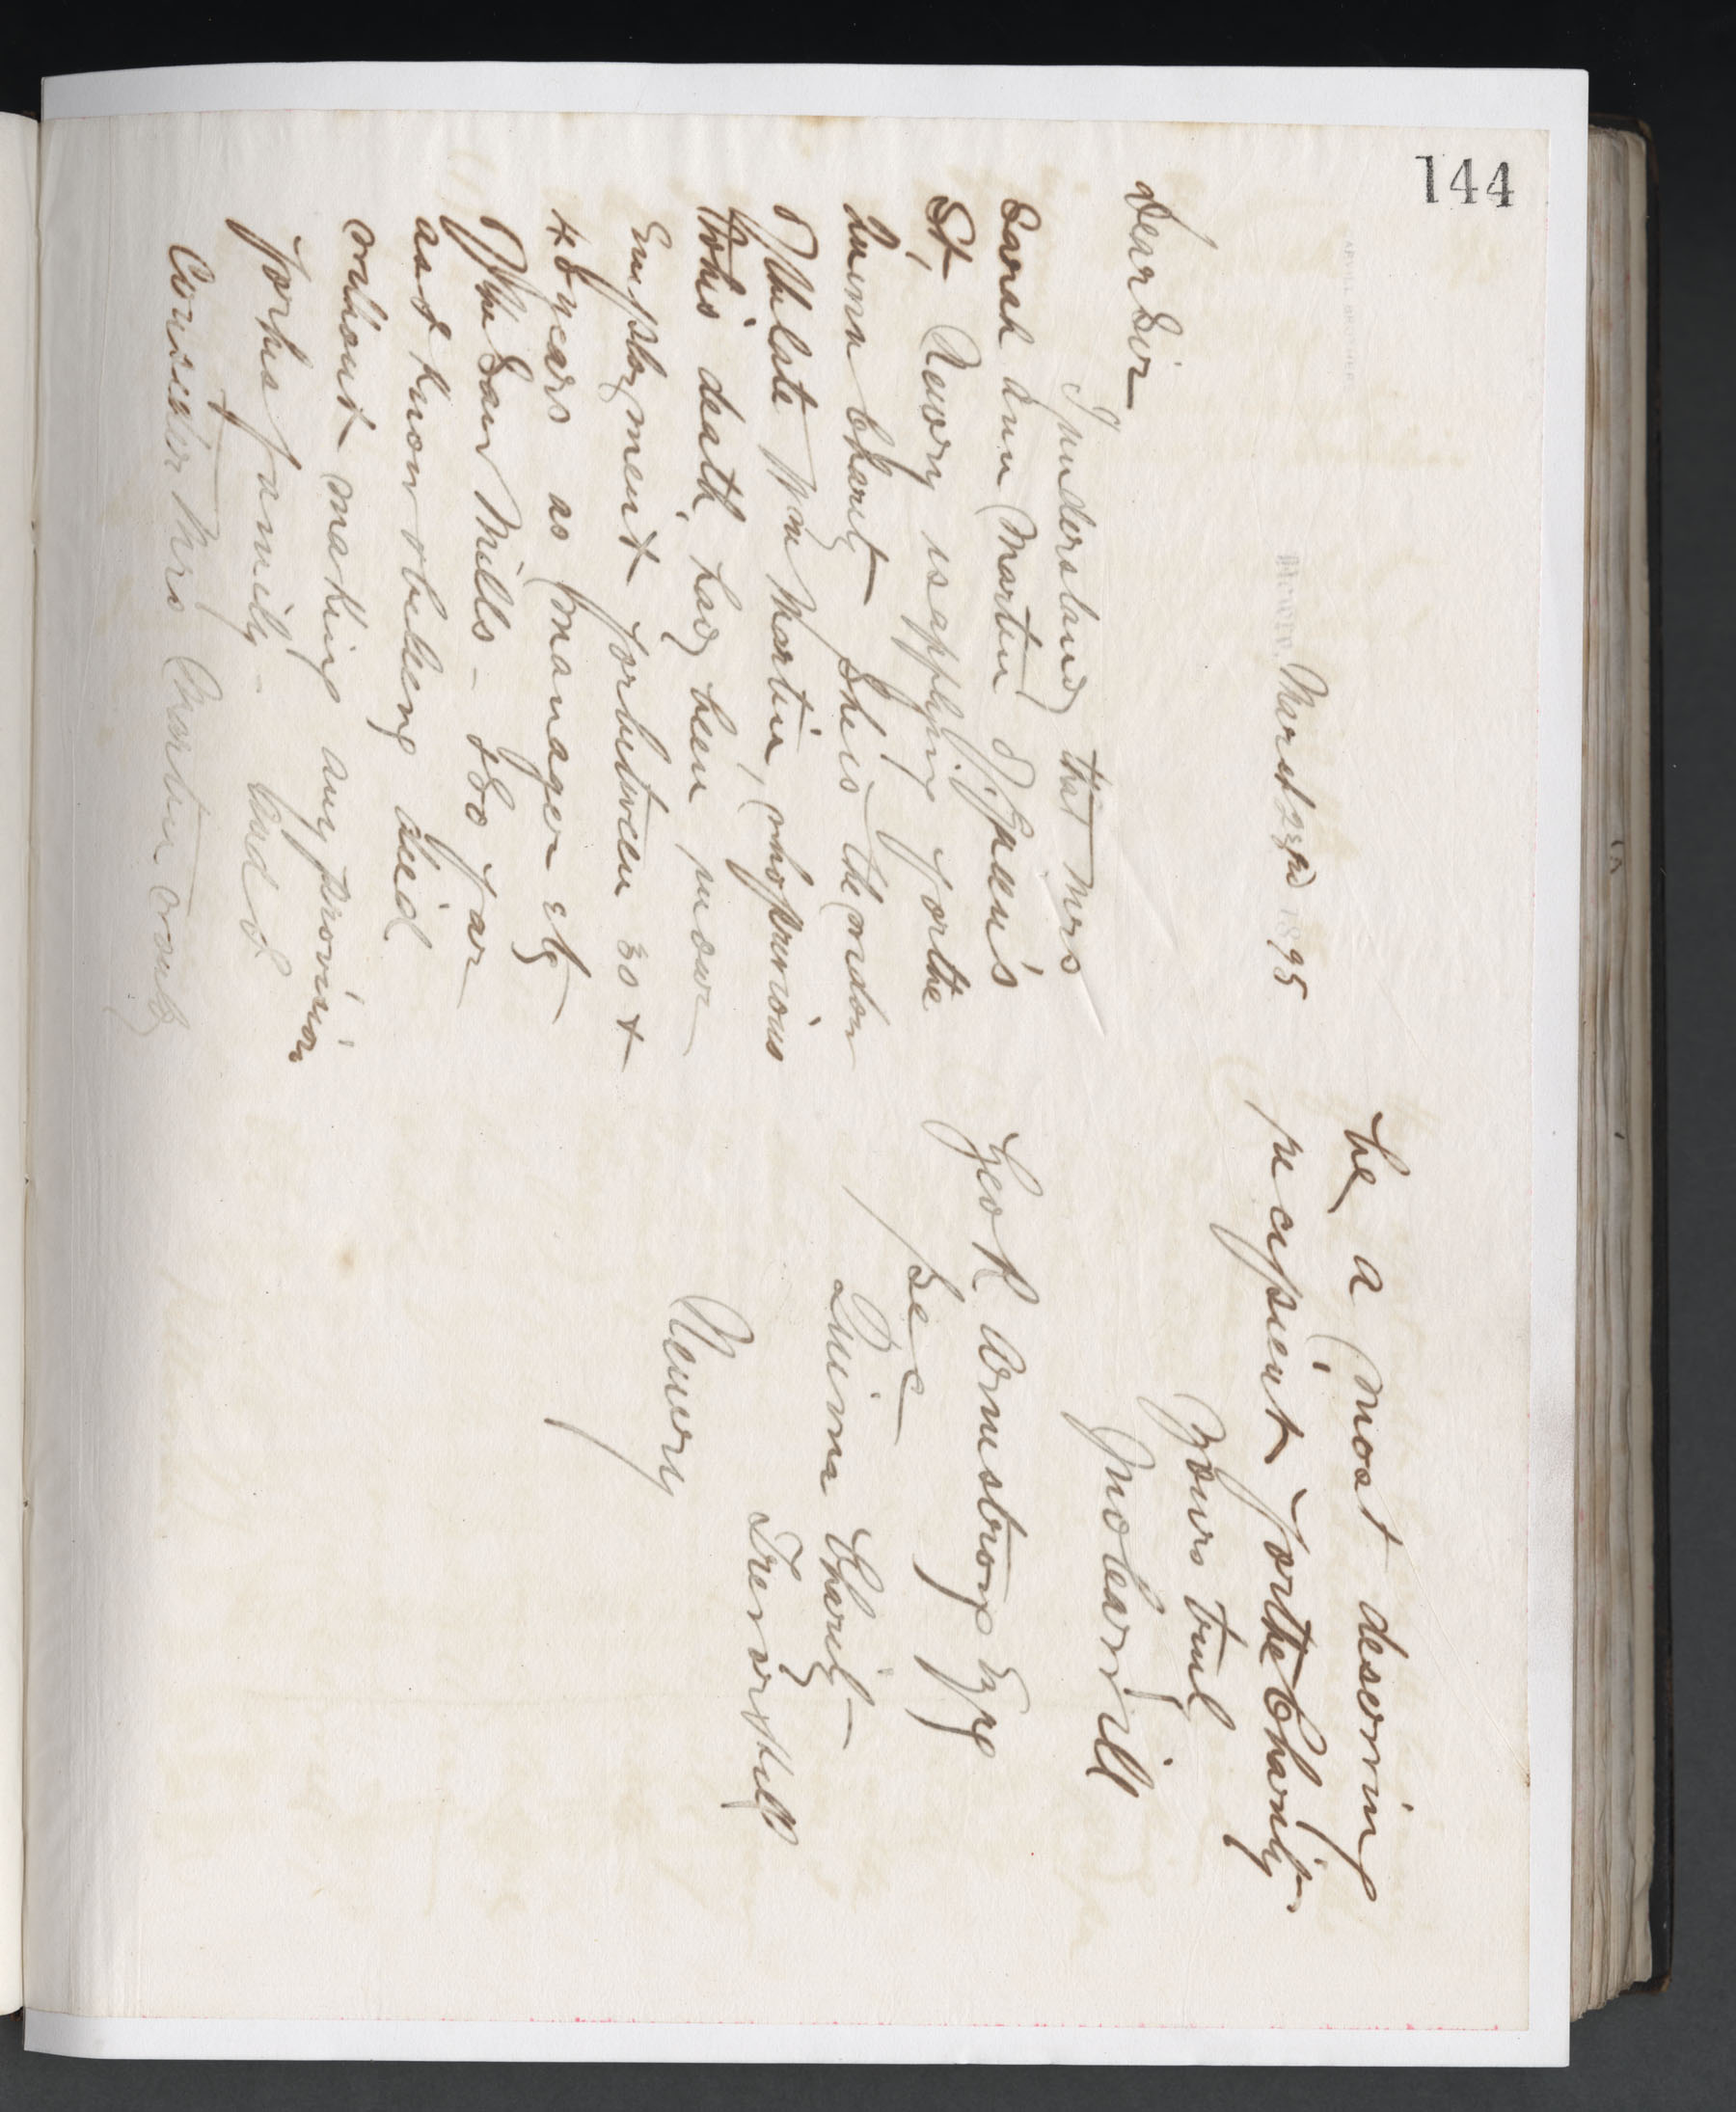 144
Newry, March 23rd 1895
Dear Sir
I understand that Mrs
Sarah Ann Martin of Queen's
St, Newry is applying for the
Quinn Charity She is the widow
of the late Wm Martin, who previous
to his death had been in our
Employment for between 30 &
40 years as manager of
the Saw Mills - & so far
as I know o being died
without making any provision
for his family. And I
Consider Mrs Martin would
be a most deserving
recipient for the Charity.
Yours truly
Geo R Armstrong Esqe
Sec
Quinn Charity
Trevor Hill
Newry